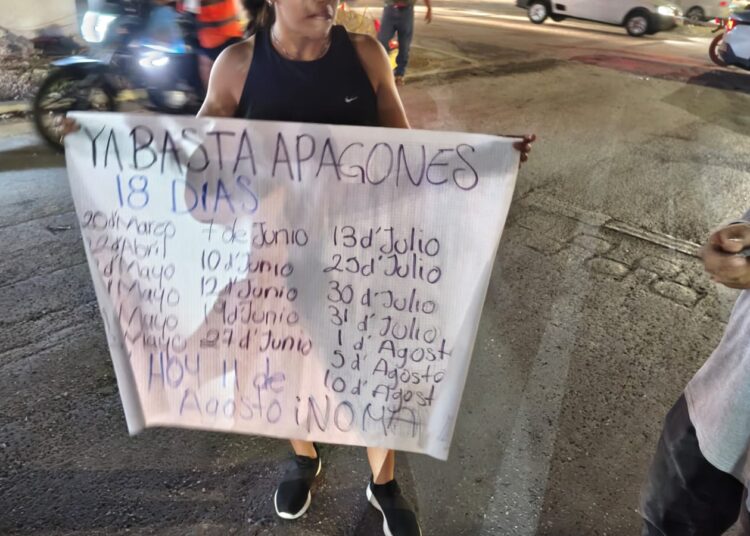 YA BASTA APAGONES
18 DIAS
20 d' Marzo
d' Abril
d' Mayo
Mayo
Mayo
Mayo
7 de Junio
10 d' Junio
12 d' Junio
19 d' Junio
27 d' Junio
13 d' Julio
25 d' Julio
30 d' Julio
31 d' Julio
1 d' Agost
5 d' Agosto
10 d' Agost
HOY 11 de
Agosto ¡NO MA